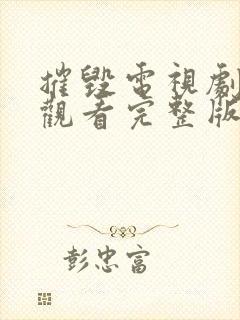 摧毀電視劇
觀看完整版
彭忠富